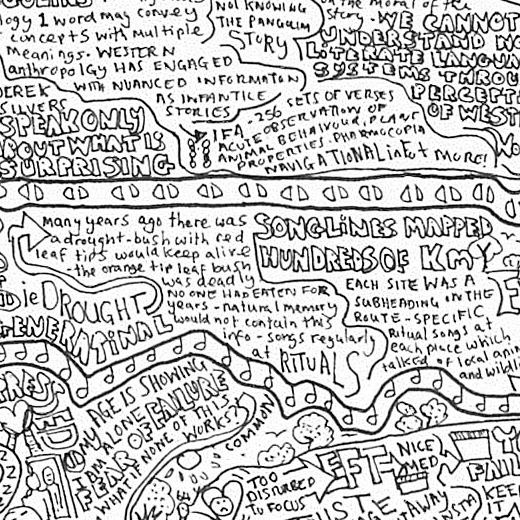 logy 1 word may convey
concepts with multiple
meanings. WESTERN
anthropolgy HAS ENGAGED
WITH NUANCED INFORMATION
AS INFANTILE
STORIES
NOT KNOWING
THE PANGULIM
STORY
on the moral of the
story - WE CANNOT
UNDERSTAND NO
LITERATE LANGUA
SYSTEMS THROU
PERCEPT
OF WEST
DEREK
SILVERS
SPEAK ONLY
ABOUT WHAT IS
SURPRISING
IFA - 256 SETS OF VERSES
ACUTE OBSERVATION OF
ANIMAL BEHAVIOUR, PLANT
PROPERTIES. PHARMOCOPIA
NAVIGATIONAL info + more!
many years ago there was
a drought-bush with red
leaf tips would keep alive
- the orange tip leaf bush
was deadly
NO ONE HAD EATEN FOR
years - natural memory
would not contain this
info - songs regularly
at RITUALS
die DROUGHT
GENERATINAL
SONGLINES MAPPED
HUNDREDS OF KM
EACH SITE WAS A
SUBHEADING IN THE
ROUTE - SPECIFIC
Ritual songs at
each place which
talked of local ani
and wildli
MY AGE IS SHOWING
I AM ALONE
FEAR OF FAILURE
WHAT IF NONE OF THIS
WORKS?
COMMON
TOO
DISTURBED
TO FOCUS
EFT
NICE
MED
FAIL
KEEP
IT
AWAY